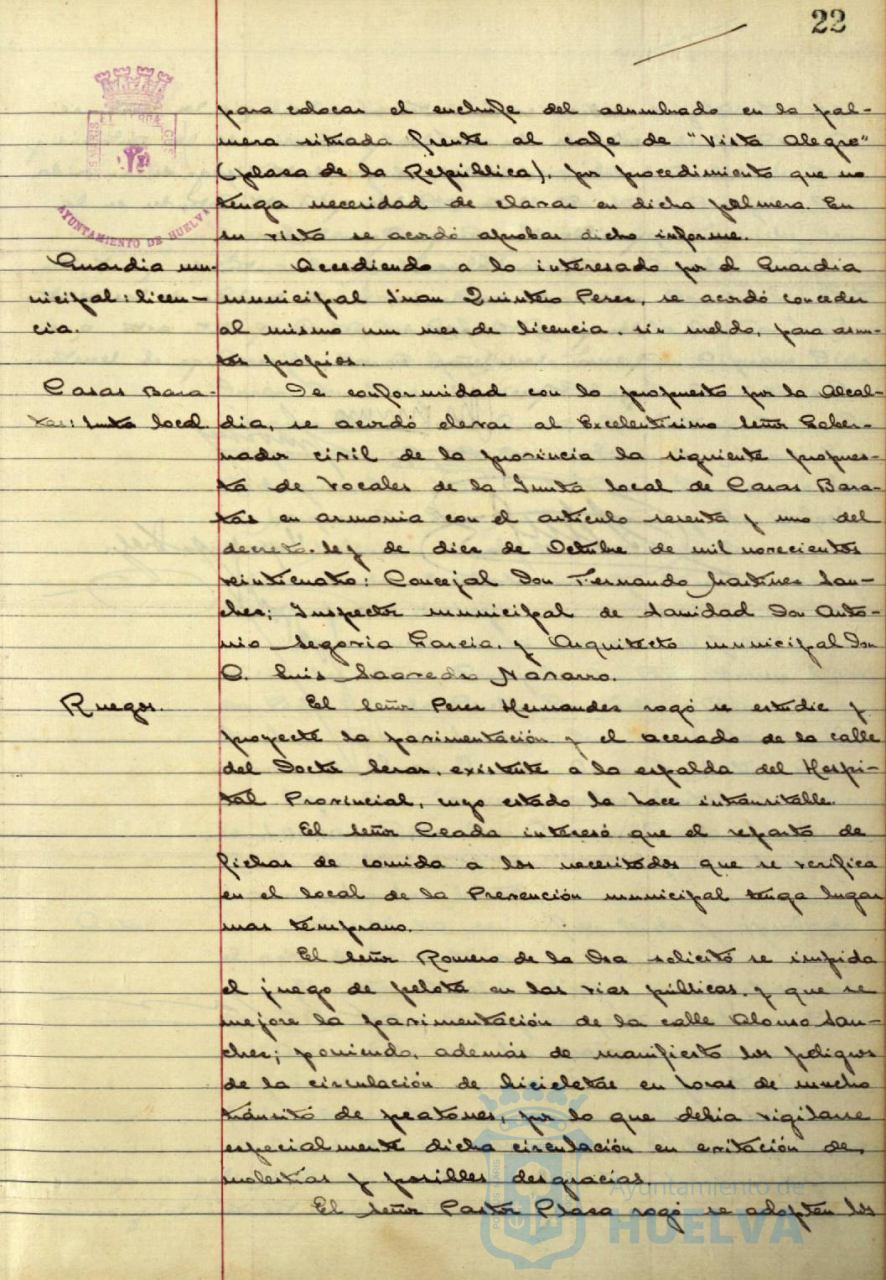 22
para colocar el enchufe del alumbrado en la pal-
mera situada frente al café de "Vista Alegre"
(plasa de la República), por procedimiento que no
tenga necesidad de clavar en dicha palmera. En
su vista se acordó aprobar dicho informe.
AYUNTAMIENTO DE HUELVA
Guardia mu-
nicipal: licen-
cia.
Accediendo a lo interesado por el Guardia
municipal Juan Quintero Peres, se acordó conceder
al mismo un mes de licencia, sin sueldo, para asun-
tos propios.
Casas Bara-
tas: Junta local.
De conformidad con lo propuesto por la Alcal-
dia, se acordó elevar al Excelentisimo Señor Gober-
nador civil de la provincia la siguiente propues-
ta de Vocales de la Junta local de Casas Bara-
tas en armonia con el artículo sesenta y uno del
decreto-ley de dies de Octubre de mil novecientos
veinticuatro: Concejal Don Fernando Martines San-
ches; Inspector municipal de Sanidad Don Anto-
nio Segovia Garcia, y Arquitecto municipal Don
Luis Saavedra Navarro.
Ruegos.
El Señor Peres Hernandes rogó se estudie y
proyecte la pavimentación y el acerado de la calle
del Doctor Seras, existente a la espalda del Hospi-
tal Provincial, cuyo estado la hace intransitable.
El señor Ceada interesó que el reparto de
fichas de comida a los necesitados que se verifica
en el local de la Prevención municipal tenga lugar
mas temprano.
El Señor Romero de la Osa solicitó se impida
el juego de pelota en las vias públicas, y que se
mejore la pavimentación de la calle Alonso San-
ches; poniendo, además de manifiesto los peligros
de la circulación de bicicletas en horas de mucho
tránsito de peatones, por lo que debia vigilarse
especialmente dicha circulación en evitación de
molestias y posibles desgracias.
El Señor Pastor Plasa rogó se adopten los
Ayuntamiento de
HUELVA